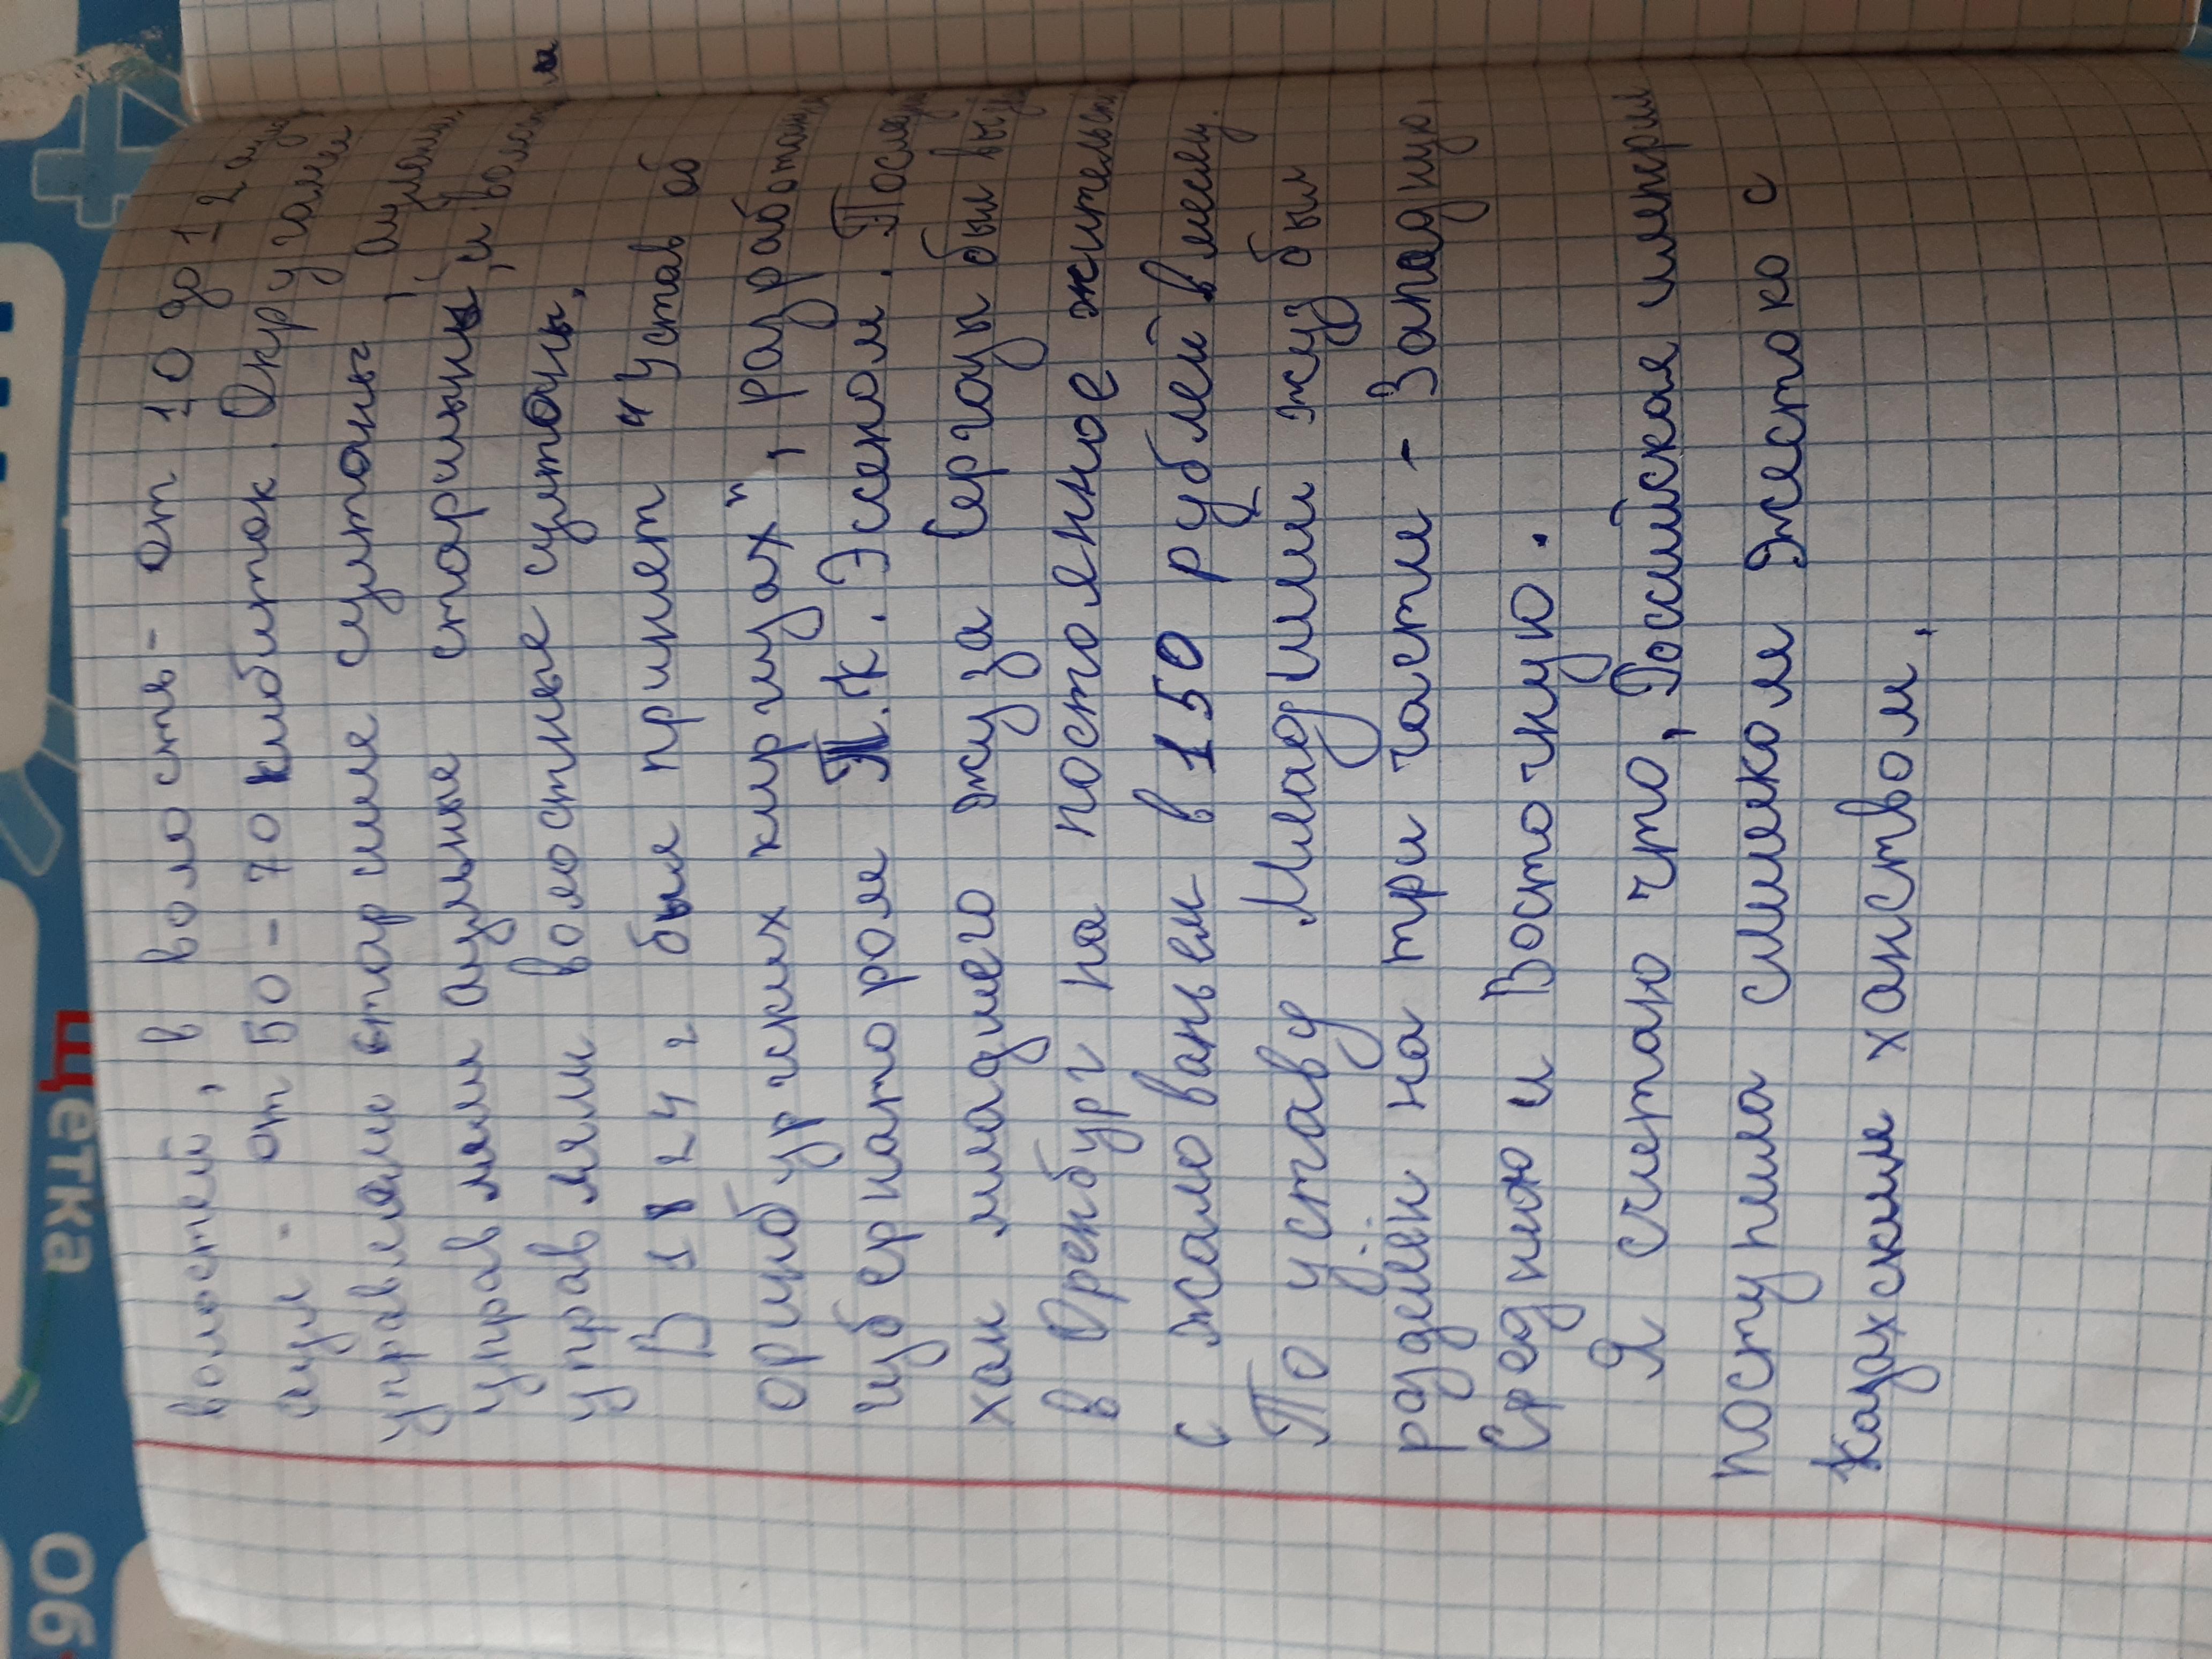 волостей, в волость - от 10 до 12 аулов,
аул - от 50-70 кибиток. Округами
управляли старшие султаны, аулами,
управляли аульные старшины, и волостями
управляли волостные султаны.
В 1824 г был принят "Устав об
оринбургских киргизах", разработан
губернатором П.К. Эссеном. После
хан младшего жуза Сергазы был вы
в Оренбург на постоянное жительст
с жалованьем в 150 рублей в месяц.
По уставу Младший жуз был
разделён на три части - Западную,
Среднюю и Восточную.
Я считаю что, Россиская империя
поступила слишком жестоко с
Казахским ханством.
Щетка
Об